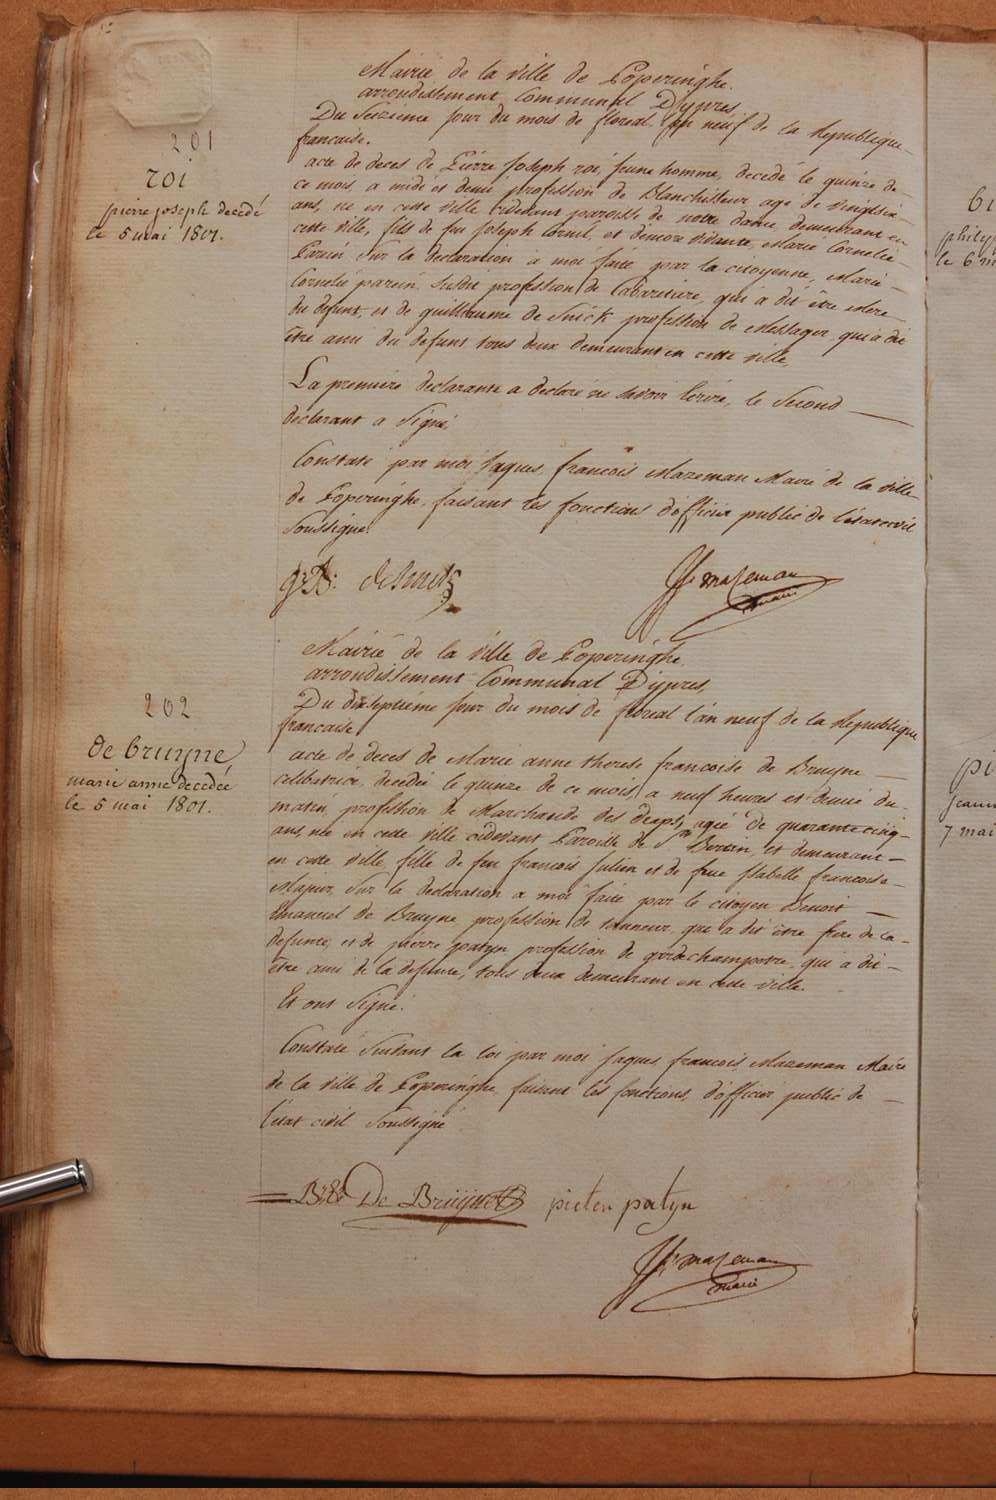 201
roi
pierre joseph decedé
le 5 mai 1801.
Mairie de la ville de Poperinghe.
arrondissement Communal D'ypres.
Du Seizieme jour du mois de floreal an neuf de la Republique
francaise.
acte de deces de Pierre Joseph roi, jeune homme, decedé le quinze de
ce mois a midi et demie profession de Blanchisseur age de vingtsix
ans, né en cette ville cidevant paroisse de notre dame, demeurant en
cette ville, fils de feu Joseph Cornil, et demeure vivante, Marie Cornelie
Parein Sur la declaration a moi faite par la citoyenne Marie
Cornelie parein, susdit profession de Cabaretiere, qui a dit être Mere
du defunt, et de guillaume de Snick profession de Messager, qui a dit
être ami du defunt tous deux demeurant en cette ville,
La premiere declarante a declaré ne savoir Ecrire, le Second
declarant a Signé,
Constaté par moi Jaques francois Mazeman Maire de la ville
de Poperinghe, faisant les fonctions d'officier public de l'etat civil
Soussigné.
mazeman
maire
202
de bruyne
marie anne decedeé
le 5 mai 1801.
Mairie de la ville de Poperinghe.
arrondissement Communal D'ypres,
Du dixseptieme jour du mois de floreal l'an neuf de la Republique
francaise
acte de deces de Marie anne therese francoise de Bruyne
celibatrice, decedée le quinze de ce mois, a neuf heures et demie du
matin, profession de Marchande des draps, agée de quarantecinq
ans, née en cette ville cidevant Paroisse de St Bertin, et demeurant
en cette ville, fille de feu francois Julien et de feue Isabelle francoise
Majeur, Sur la declaration a moi faite par le citoyen Benoit
Emanuel de Bruyne profession de tanneur, qui a dit être frere de la
defunte, et de pierre patyn profession de gardechampetre, qui a dit
être ami de la defunte, tous deux demeurant en cette ville.
Et ont Signé.
Constaté Suivant la loi par moi Jaques francois Mazeman Maire
de la ville de Poperinghe, faisant les fonctions d'officier public de
l'etat civil Soussigné
De Bruyne pieter patyn
mazeman
maire
le 6 m
7 mai